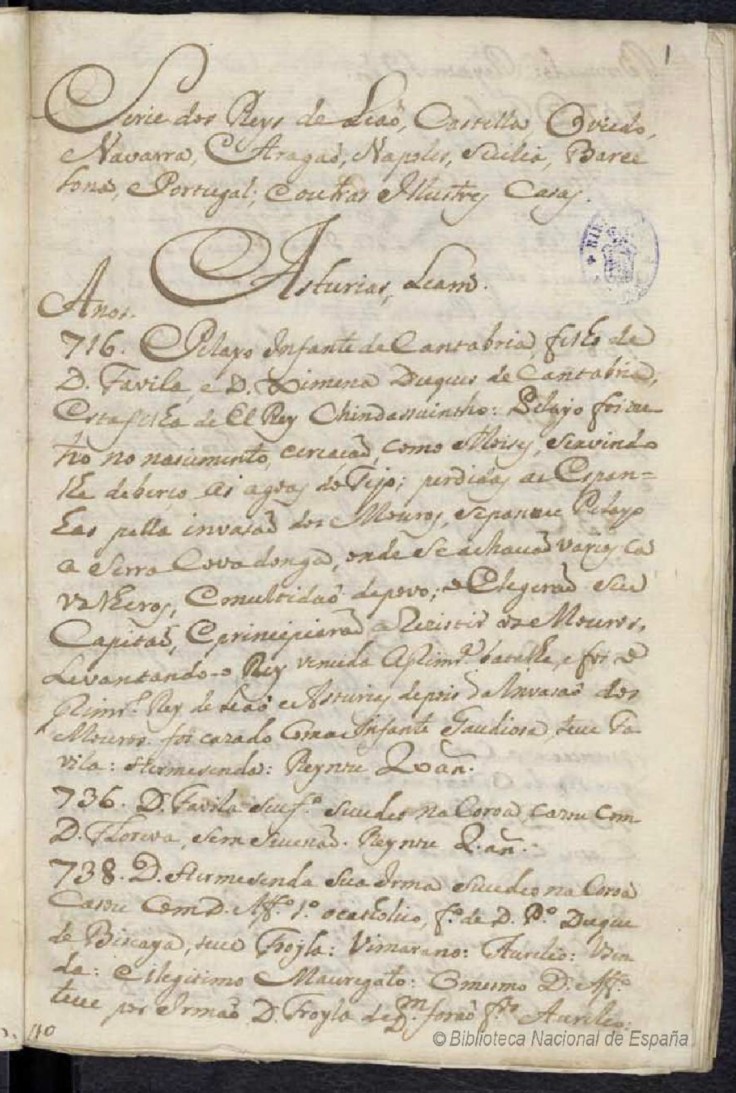 1
Serie dos Reys de Leaõ, Castella, Oviedo,
Navarra, e Aragaõ, Napoles, Sicilia, Barce
lona, e Portugal; e outras Illustres Casas.
Asturias, Leam.
Anos.
716. Pelayo Infante de Cantabria, filho de
D. Favila, e D. Ximena Duques de Cantabria,
Esta filha de El Rey Chindassuintho: Pelayo foi
no nascimento, como Moises,
de berço as agoas do Tejo; perdidas as Espan=
has pella invasaõ dos Mouros, Pelayo
a Serra Covadonga, onde se achavaõ varios ca
valheros, e multidaõ de povo; e Elegeraõ seu
Capitaõ, e principiaraõ a Rezistir aos Mouros,
Levantando-o Rey vencida a Primr.ª batalha, e foi o
Primr.º Rey de Leaõ e Asturias depois da Invasaõ dos
Mouros. foi cazado com a Infante Gaudiosa teve Fa
vila: Hermesenda: Reynou añ.
736. D. Favila seu f.º sucedeo na Coroa, cazou com
D. sem Reynou 2. añ.
738. D. Hermesenda sua Irma sucedeo na Coroa
Cazou com D. Aff.º 1.º o catolico, f.º de D. P.º Duque
de Biscaya, teve Froyla: Vimarano: Aurelio:
e ilegitimo Mauregato: O mesmo D. Aff.º
teve por Irmaõ D. Froyla de foraõ f.ºs Aurelio:
© Biblioteca Nacional de España